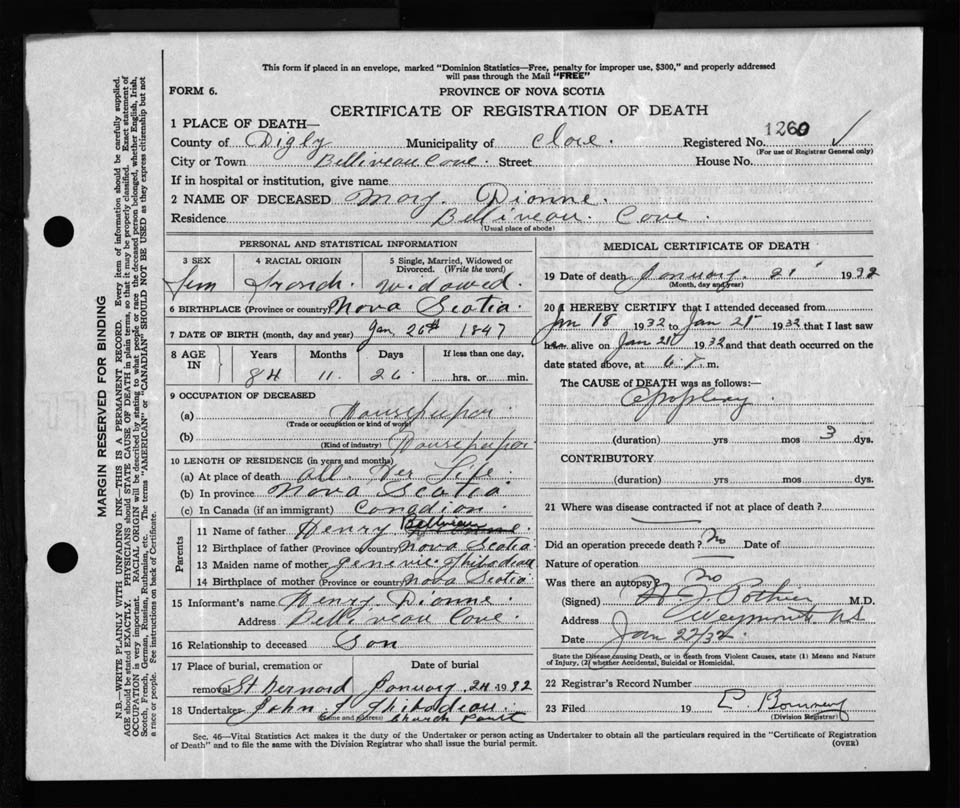 This form if placed in an envelope, marked "Dominion Statistics—Free, penalty for improper use, $300," and properly addressed
will pass through the Mail "FREE"
FORM 6.
PROVINCE OF NOVA SCOTIA
CERTIFICATE OF REGISTRATION OF DEATH
1 PLACE OF DEATH—
1260
County of Digby Municipality of Clare. Registered No.
(For use of Registrar General only)
City or Town Belliveau Cove. Street House No.
If in hospital or institution, give name
2 NAME OF DECEASED Mary. Dionne.
Residence Belliveau. Cove.
(Usual place of abode)
PERSONAL AND STATISTICAL INFORMATION
3 SEX 4 RACIAL ORIGIN 5 Single, Married, Widowed or
Divorced. (Write the word)
Fem French. Widowed.
6 BIRTHPLACE (Province or country) Nova Scotia.
7 DATE OF BIRTH (month, day and year) Jan. 26th 1847
8 AGE IN Years Months Days If less than one day,
84 11. 26 hrs. or min.
9 OCCUPATION OF DECEASED
(a) Housekeeper.
(Trade or occupation or kind of work)
(b) Housekeeper
(Kind of industry)
10 LENGTH OF RESIDENCE (in years and months)
(a) At place of death all. Her Life.
(b) In province Nova Scotia
(c) In Canada (if an immigrant) Canadian.
Parents
11 Name of father Henry Belliveau
12 Birthplace of father (Province or country) Nova Scotia.
13 Maiden name of mother Genevie. Thibodeau
14 Birthplace of mother (Province or country) Nova Scotia.
15 Informant's name Henry. Dionne.
Address Belliveau Cove.
16 Relationship to deceased Son
17 Place of burial, cremation or Date of burial
removal St Bernard January 24 1932
18 Undertaker John J Thibodeau.
(Name and Address) Church Point
MEDICAL CERTIFICATE OF DEATH
19 Date of death January. 21 1932
(Month, day and year)
20 I HEREBY CERTIFY that I attended deceased from
Jan 18 1932 to Jan 21st 1932 that I last saw
her alive on Jan 21st 1932 and that death occurred on the
date stated above, at 6 m.
The CAUSE OF DEATH was as follows:—
Apoplexy
(duration) yrs mos 3 dys.
CONTRIBUTORY
(duration) yrs mos dys.
21 Where was disease contracted if not at place of death?
Did an operation precede death? No Date of
Nature of operation
Was there an autopsy No
(Signed) Pothier M.D.
Address Weymouth NS
Date Jan 22/32.
State the Disease causing Death, or in death from Violent Causes, state (1) Means and Nature
of Injury, (2) whether Accidental, Suicidal or Homicidal.
22 Registrar's Record Number
23 Filed 19
(Division Registrar)
Sec. 46—Vital Statistics Act makes it the duty of the Undertaker or person acting as Undertaker to obtain all the particulars required in the "Certificate of Registration
of Death" and to file the same with the Division Registrar who shall issue the burial permit.
(OVER)
MARGIN RESERVED FOR BINDING
N.B.—WRITE PLAINLY WITH UNFADING INK—THIS IS A PERMANENT RECORD. Every item of information should be carefully supplied.
AGE should be stated EXACTLY. PHYSICIANS should STATE CAUSE OF DEATH in plain terms, so that it may be properly classified. Exact statement of
OCCUPATION is very important. RACIAL ORIGIN will be described by stating to what people or race the deceased person belonged, whether English, Irish,
Scotch, French, German, Russian, Ruthenian, etc. The terms "AMERICAN" or "CANADIAN" SHOULD NOT BE USED as they express citizenship but not
a race or people. See instructions on back of Certificate.